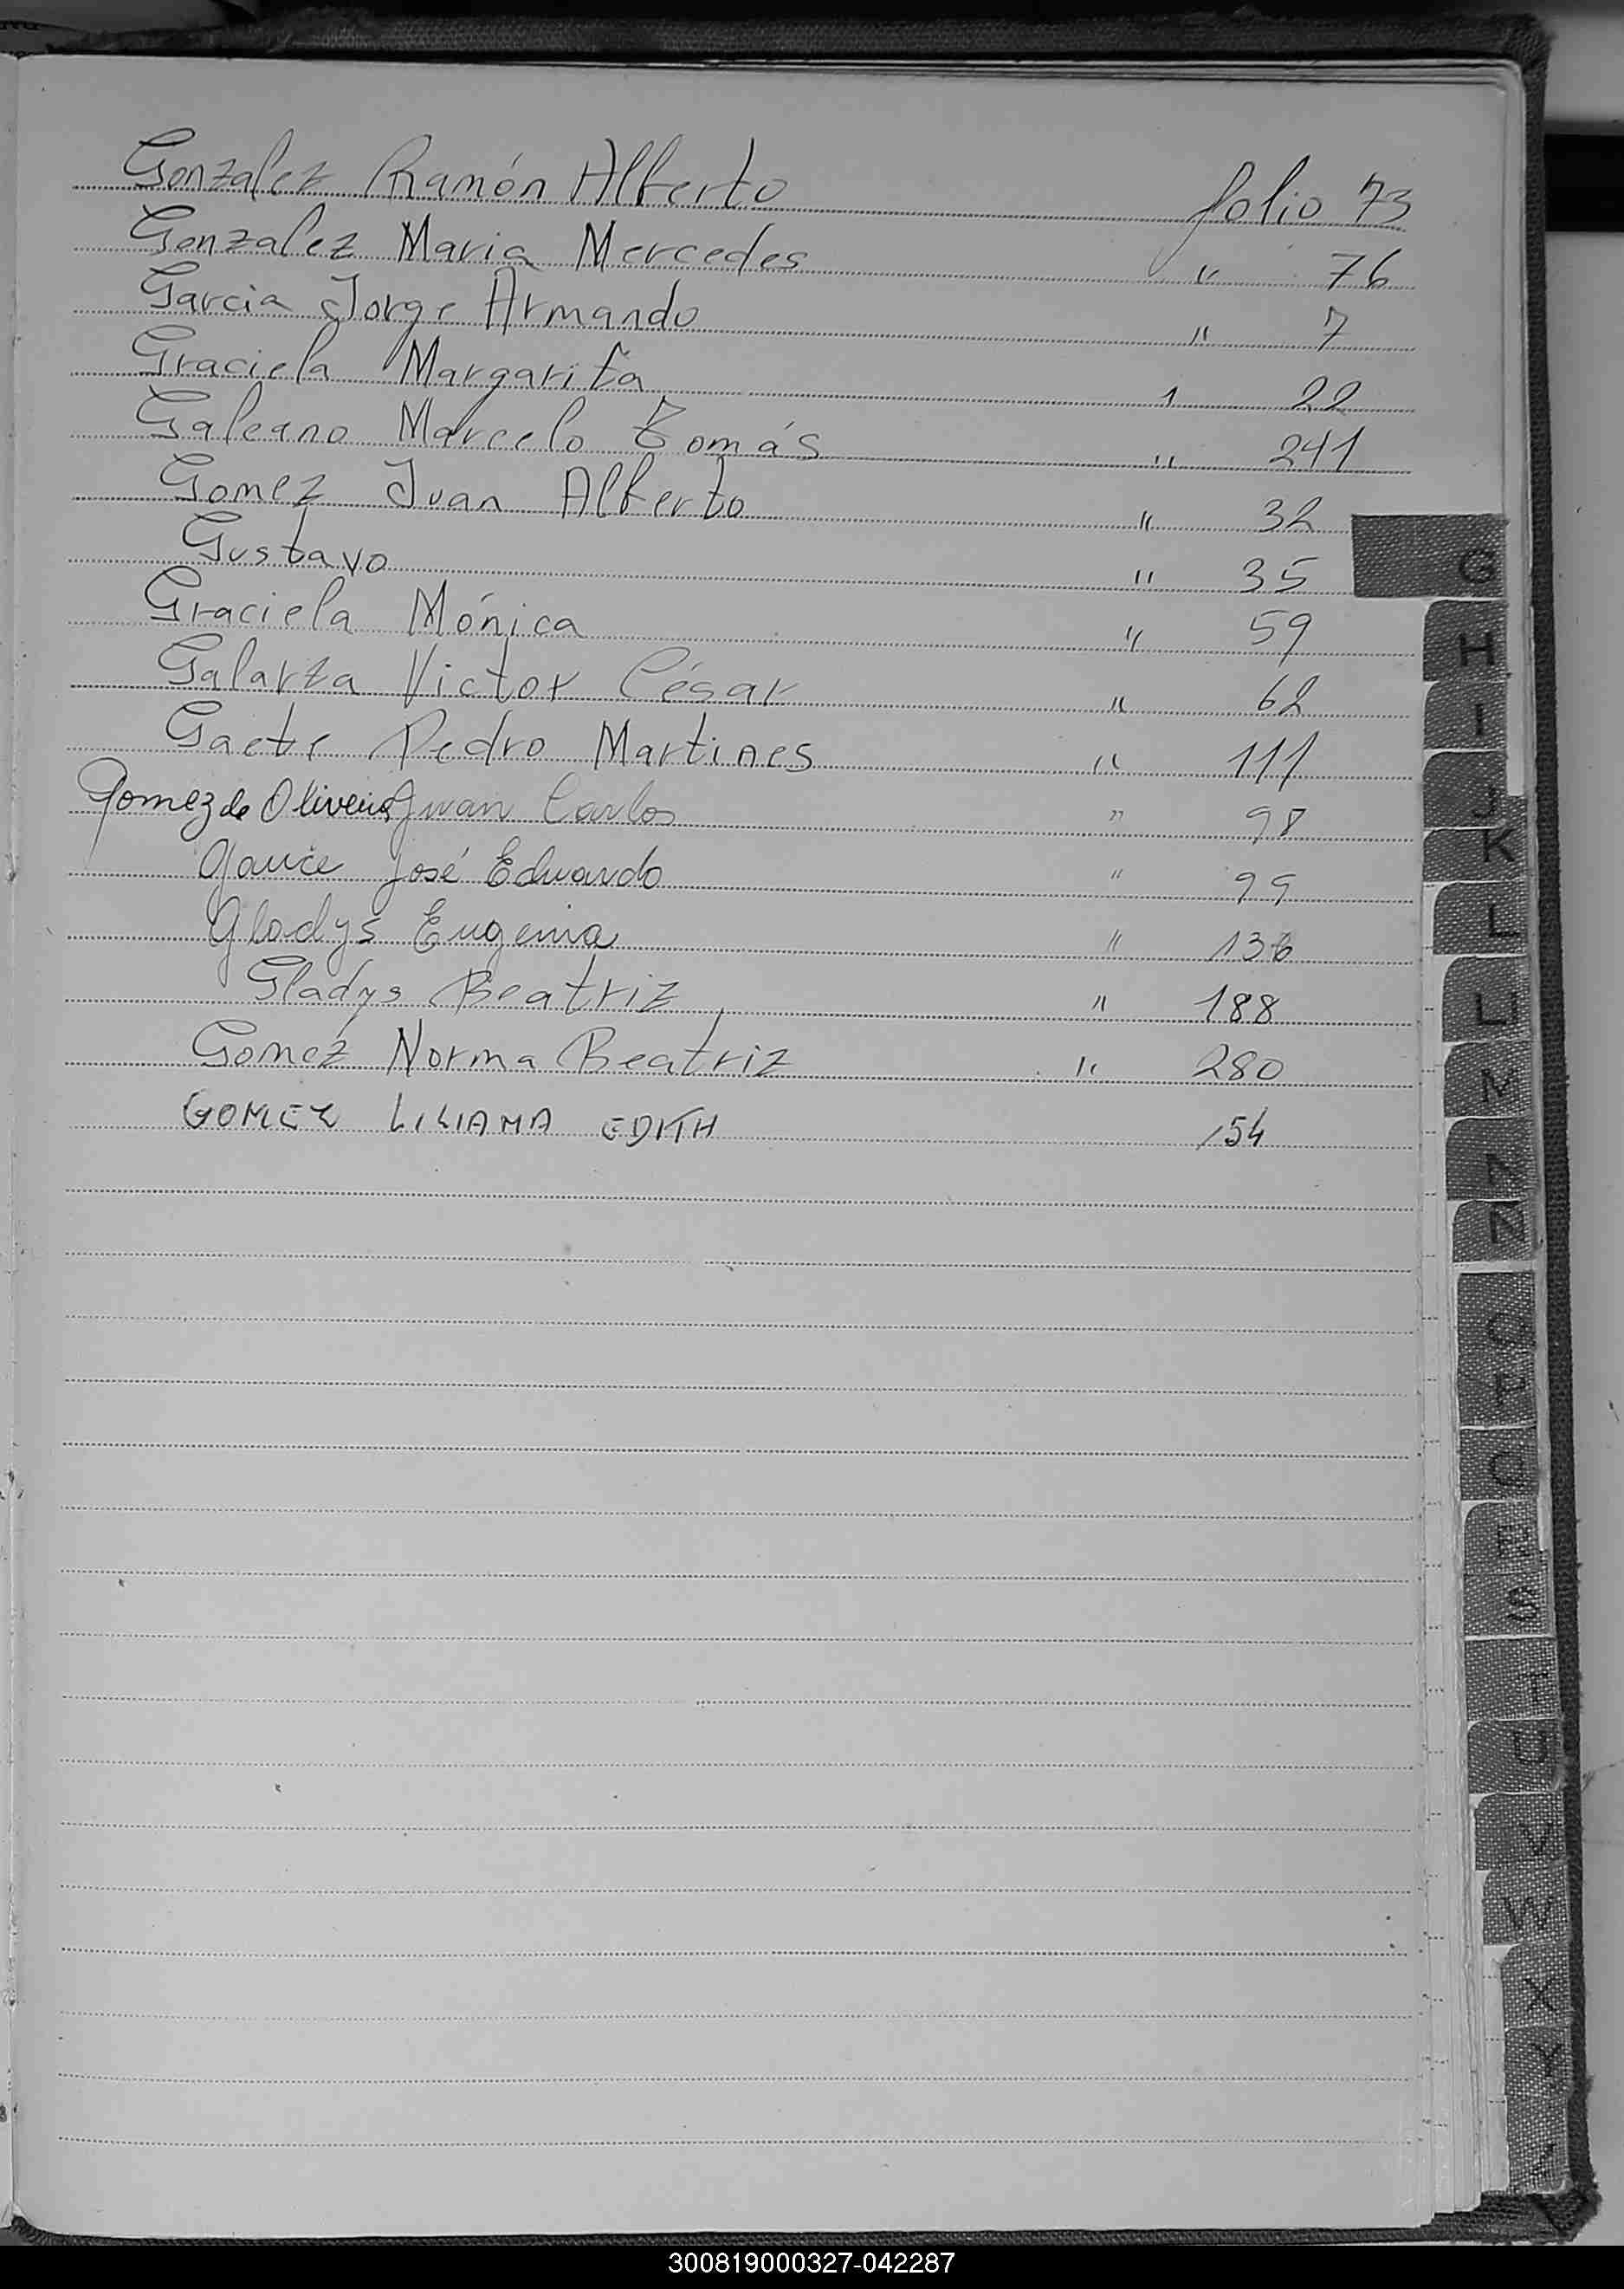 Gonzalez Ramón Alberto folio 73
Gonzalez Maria Mercedes " 76
Garcia Jorge Armando " 7
Graciela Margarita " 22
Galeano Marcelo Tomás " 241
Gomez Juan Alberto " 32
Gustavo " 35
Graciela Mónica " 59
Galarza Victor César " 62
Gaete Pedro Martines " 111
Gomez de Oliveira Juan Carlos " 98
José Eduardo " 99
Gladys Eugenia " 136
Gladys Beatriz " 188
Gomez Norma Beatriz " 280
GOMEZ LILIANA EDITH 154
G
H
I
J
K
L
LL
M
N
Ñ
O
P
Q
R
S
T
U
V
W
X
Y
300819000327-042287